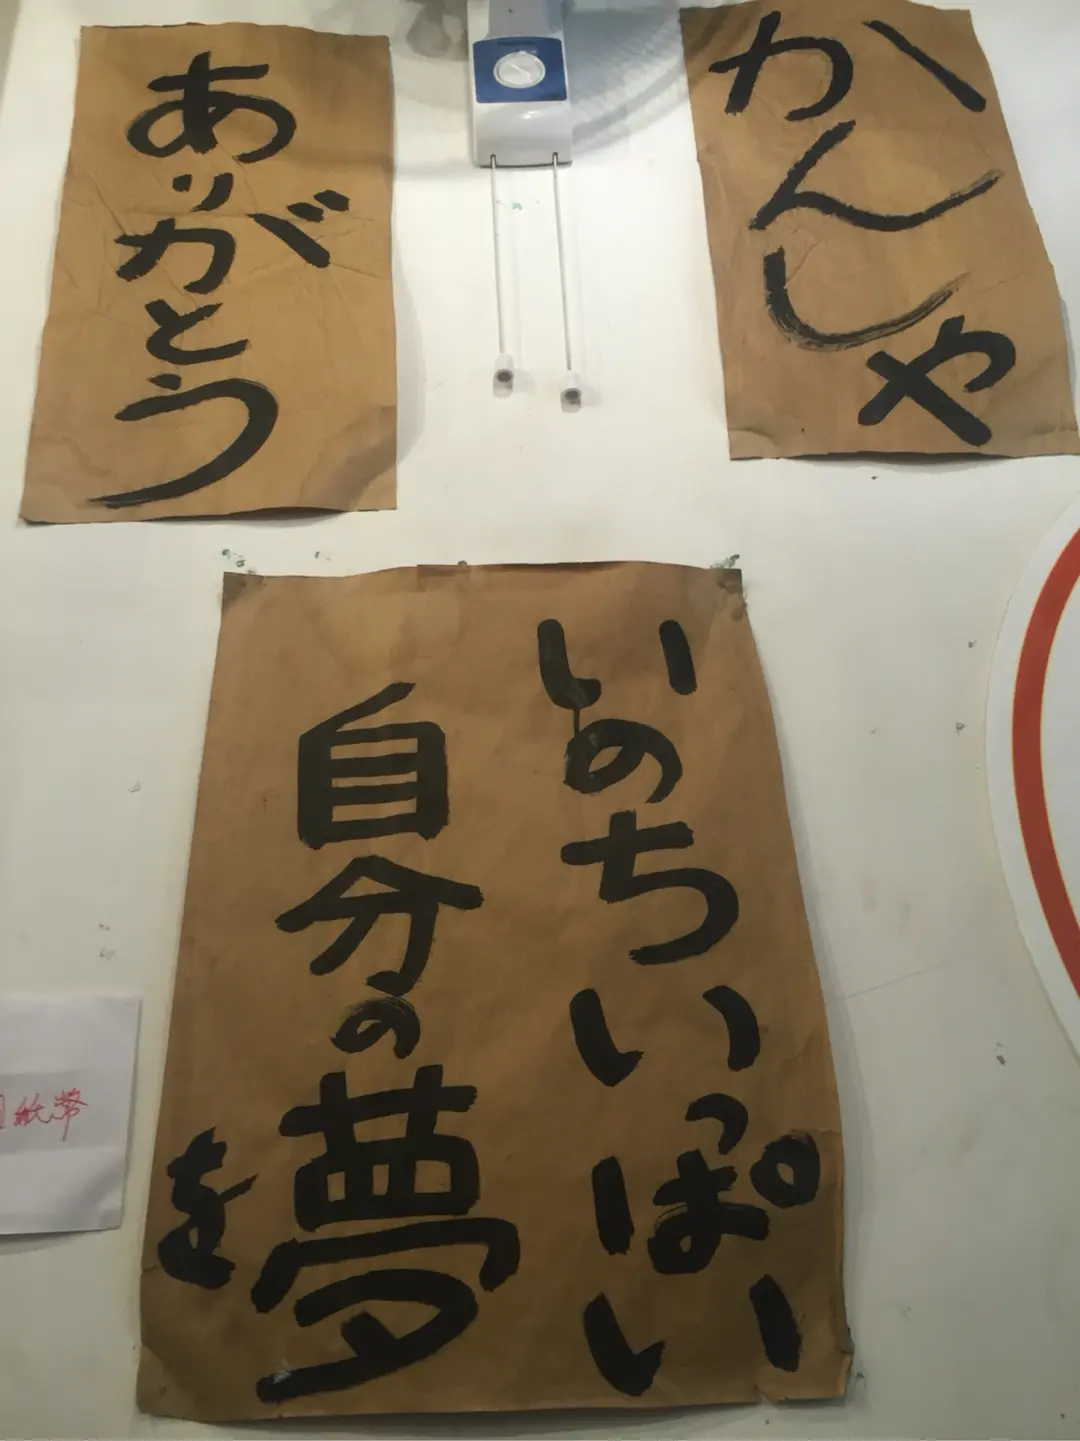 ありがとう
かんしゃ
いのちいっぱい
自分の夢を
紙幣